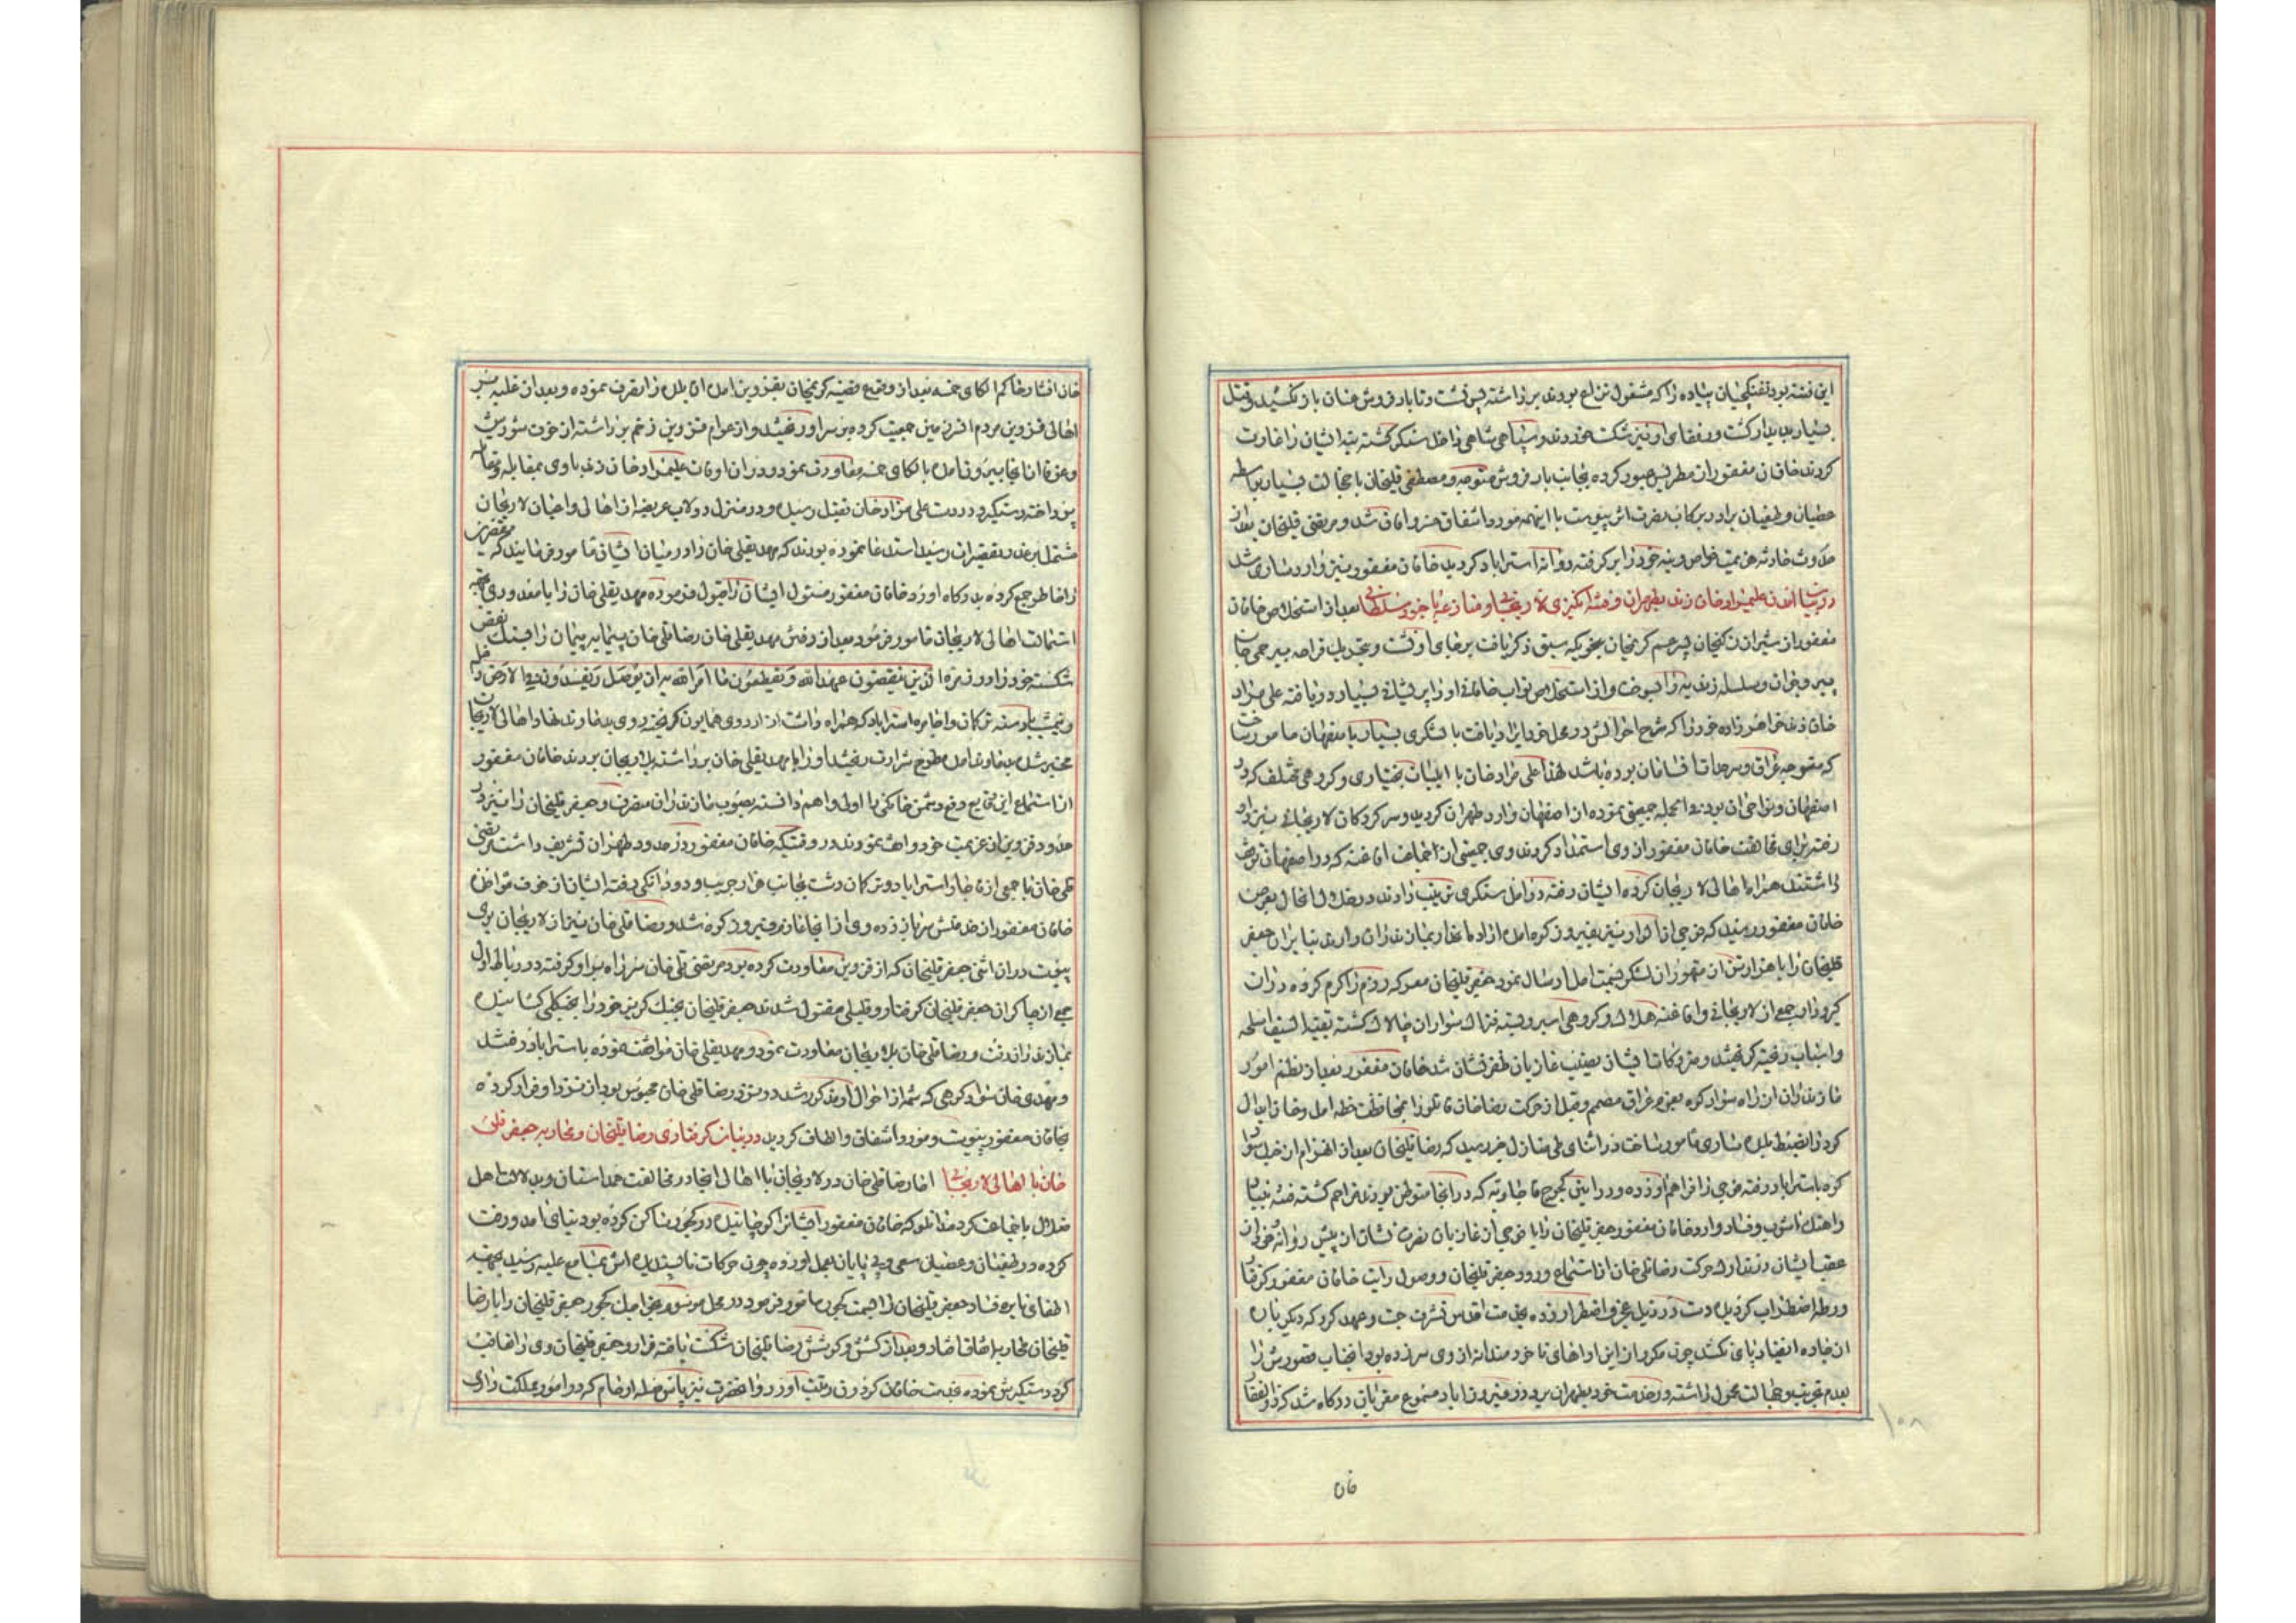 این فتنه بود تفنگچیان پیاده را که مشغول نزاع بودند برداشته پس نشست و تا بارفروش عنان باز نکشید و قتل
بسیار پدیدار گشت و رفقای او نیز شکست خوردند و سپاهی شاهی داخل سنگر گشته بنه ایشان را غارت
کردند خاقان مغفور از مطریس عبور کرده بجانب بارفروش متوجه و مصطفی قلیخان با خجالت بسیار بواسطه
عصیان و طغیان برادر برکاب نصرت اثر پیوست با اینهمه مورد اشفاق خسروانی شد و مرتضی قلیخان بعد از
حدوث حادثه هزیمت خواص و بنه خود را بر گرفته روانه استراباد گردید خاقان مغفور نیز وارد ساری شد
در بیان آمدن علیمراد خان زند بطهران و فتنه انگیزی لاریجانی و منازعه با خود سلطانی بعد از استخلاص خاقان
مغفور از شیراز زکیخان پسر عم کریمخان بنحویکه سبق ذکر یافت بر جای او نشست و بتحریک قراحه بیرحمی جان
پیر و جوان و سلسله زندیه را بسوخت و از استخلاص نواب خاقانی او را پریشانی بسیار رو یافته علی مراد
خان زند خواهر زاده خود را که شرح احوالش در محل خود ایراد یافت با لشکری بسیار باصفهان مامور ساخت
که متوجه عراق و سرحدات خاقان بوده باشد لهذا علی مراد خان با ایلیات بختیاری و گروهی مختلف که در
اصفهان و نواحی آن بودند فی الجمله جمعیتی نموده از اصفهان وارد طهران گردید و سرکردگان لاریجانی بنزد او
رفته برای مخالفت خاقان مغفور از وی استمداد کردند وی جمعیتی از اجلاف افاغنه که در اصفهان توقف
داشتند همراه اهالی لاریجان کرده ایشان رفته در آمل سنگری ترتیب دادند در خلال اینحال بعرض
خاقان مغفور رسید که فوجی از الوار نیز بفیروزکوه آمده اراده مازندران دارند بنابران جعفر
قلیخان را با هزار تن از متهوران لشکر بسمت آمل ارسال نمود جعفر قلیخان معرکه رزم را گرم کرده در آن
گیرودار جمعی از لاریجانی و افاغنه هلاک و گروهی اسیر و بسته فتراک سواران چالاک گشته بقیة السیف اسلحه
و اسباب ریخته گریختند و متروکات ایشان نصیب غازیان ظفر نشان شد خاقان مغفور بعد از نظم امور
مازندران از راه سوادکوه بعزم عراق مصمم و قبل از حرکت رضا خان قاجار را بمحافظت خطه آمل و خان ابدال
کرد را بضبط بلده ساری مامور ساخت در اثنای طی منازل خبر رسید که رضا قلیخان بعد از انهزام از خیل سواد
کوه باستراباد رفته فوجی را فراهم آورده و در این کوچ قاجاریه که در آنجا متوطن بودند مزاحم گشته فتنه بنیاد
و آهنگ آشوب و فساد دارد خاقان مغفور جعفر قلیخان را با فوجی از غازیان نصرت نشان از پیش روانه خود از
عقب ایشان در تدارک حرکت رضا قلی خان از استماع ورود جعفر قلیخان و وصول رایت خاقان مغفور گرفتار
ورطه اضطراب گردیده دست در ذیل عجز و اضطرار زده بخدمت اقدس تشرف جست و عهد کرد که دیگر پای
از جاده انقیاد پای نکشد چون مکرر از این اداهای ناخردمندانه از وی سر زده بود آنجناب قصورش را
بعدم تجربت و جهالت محول داشته در خدمت خود بطهران برد در فیروزاباد مسموع مقربان درگاه شد که ذوالفقار
خان
۱۰۸
خان افشار حاکم الکای خمسه بعد از وقوع قضیه کریمخان بقزوین آمده آن بلده را تصرف نموده و بعد از غلبه بر
اهالی قزوین مردم آن سرزمین جمعیت کرده بر سر او ریختند و از عوام قزوین زخم برداشته از خوف شورش
و غوغا از آنجا بیرون آمده بالکای خمسه معاودت نمود و در آن اوقات علیمراد خان زند با وی بمقابله و مقاتله
پرداخته دستگیر و در دست علی مراد خان بقتل رسیده و در منزل دولاب عریضه از اهالی و اعیان لاریجان
مشتمل بر عذر تقصیرات رسید استدعا نموده بودند که مهدیقلی خان را در میان ایشان مامور فرمایند که
را خاطر جمع کرده بدرگاه آورد خاقان مغفور مسئول ایشان را قبول فرموده مهدیقلی خان را با معدودی بجهه
استمالت اهالی لاریجان مامور فرمود بعد از رفتن مهدیقلی خان رضا قلی خان پیمانه پیمان را بسنگ نقض
شکسته خود را در زمره الذین ینقضون عهد الله و یقطعون ما امر الله به ان یوصل و یفسدون فی الارض داخل
و نیمشب با دسته ترکمان و اجامره استراباد که همراه داشت از اردوی همایون گریخته روی بدماوند نهاد و اهالی لاریجان
مخبر شده بدماوند آمده مطرح شرارت ریختند او را با مهدیقلی خان برداشته بلاریجان بردند خاقان مغفور
از استماع این وقایع دفع دشمن خانگی را اولی و اهم دانسته بصوب مازندران منصرف و جعفر قلیخان را نیز در
حدود قزوین از عزیمت خود واقف نمودند در وقتیکه خاقان مغفور در حدود طهران تشریف داشت مرتضی
قلی خان با جمعی از قاجار استراباد و ترکمان دشت بجانب هزارجریب و دودانگه رفته ایشان از خوف مواخذه
خاقان مغفور از خدمتش سرباز زده وی از آنجا عازم فیروزکوه شد و رضا قلی خان نیز از لاریجان بوی
پیوست در آن اثنی جعفر قلیخان که از قزوین معاودت کرده بود مرتضی قلی خان سر راه بر او گرفته در رباط اول
جمعی از چاکران جعفر قلیخان گرفتار و قلیلی مقتول شدند جعفر قلیخان بجنگ گریز خود را بجنگلی کشانیده
بمازندران رفت و رضا قلی خان بلاریجان معاودت نمود و مهدیقلی خان مرافقت نموده باستراباد رفتند
و مهدی خان سوادکوهی که شمه از احوال او مذکور شد در نزد رضا قلی خان محبوس بود از نزد او فرار کرده
بخاقان مغفور پیوست و مورد اشفاق و الطاف گردید در بیان گرفتاری رضا قلیخان و محاربه جعفر قلی
خان با اهالی لاریجان اما رضا قلی خان در لاریجان با اهالی آنجا در مخالفت همداستان و بدلالت اهل
ضلال با جماعت کرد مدانلو که خاقان مغفور ایشانرا کوچانیده در کجور ساکن کرده بود بنای آمد و رفت
کرده در طغیان و عصیان سعی بی پایان بعمل آورده چون حرکات ناپسندیده اش بمسامع علیه رسید بجهة
اطفای نایره فساد جعفر قلیخان را بسمت کجور مامور فرمود در محل موسوم بخراجک کجور جعفر قلیخان را با رضا
قلیخان محاربه اتفاق افتاد و بعد از کشش و کوشش رضا قلیخان شکست یافته فرار و جعفر قلیخان وی را تعاقب
کرد دستگیرش نموده بخدمت خاقان گردون رتبت آورد و آنحضرت نیز پاس صله ارحام که در امور مملکت داری